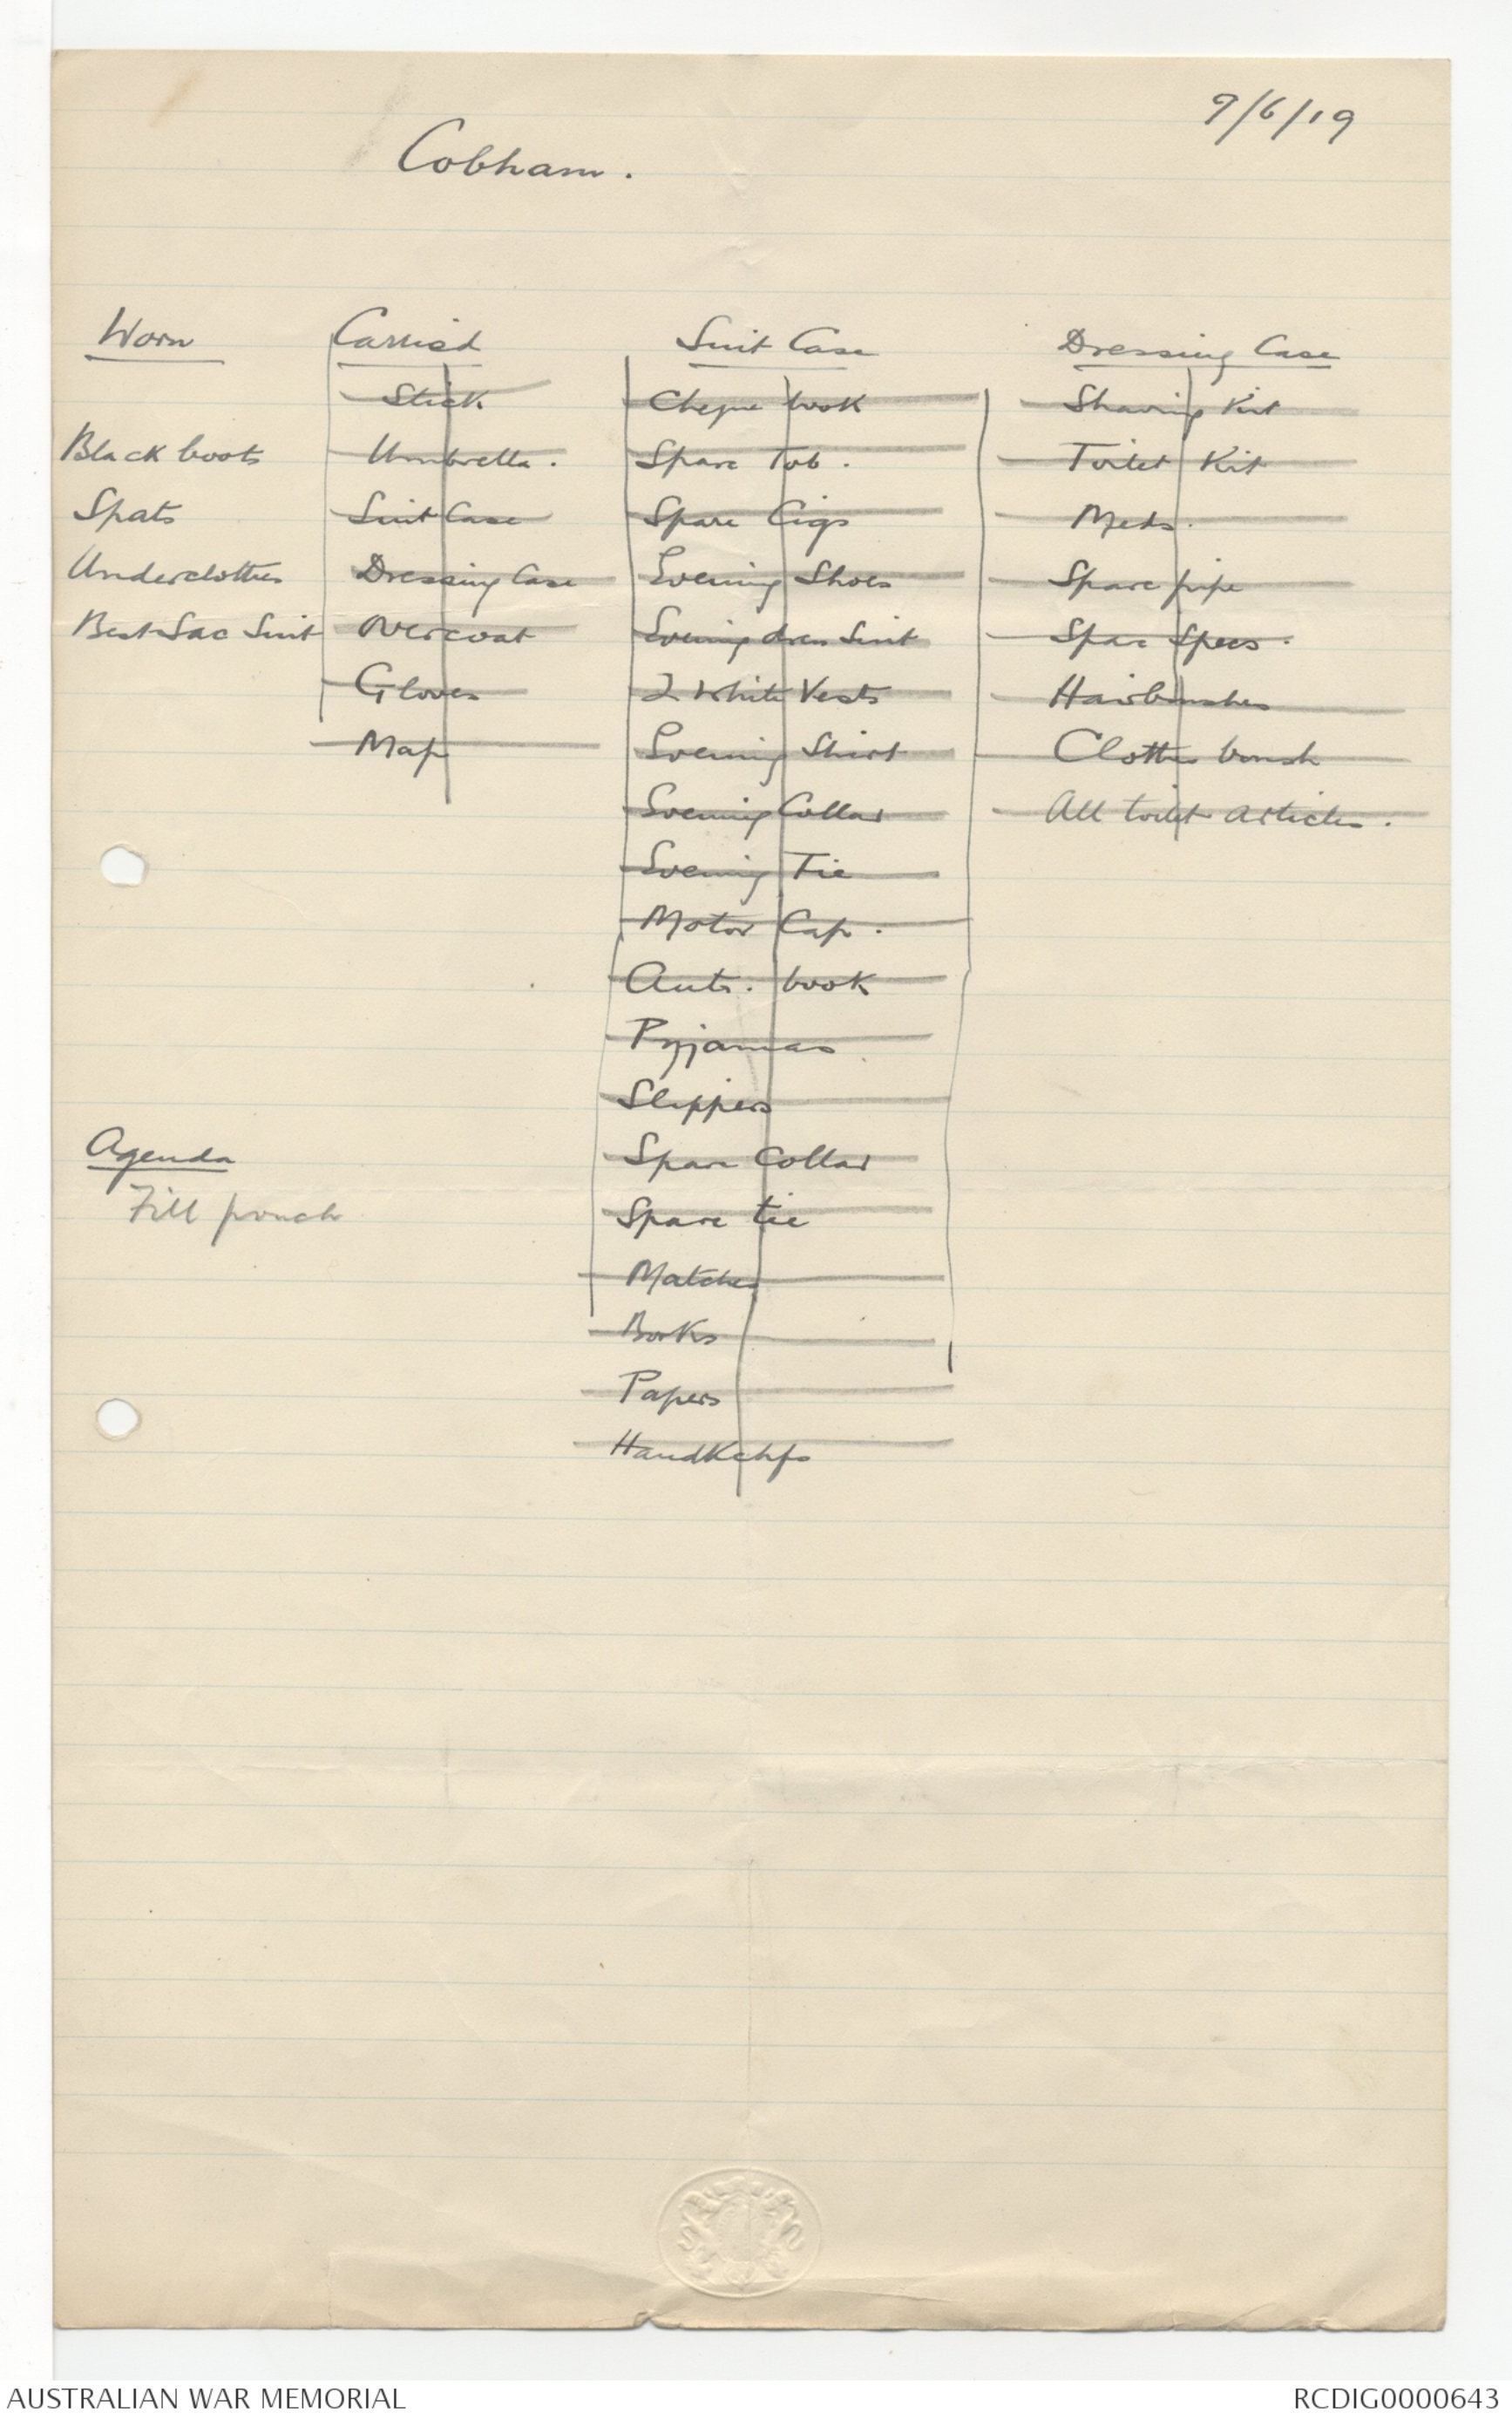 9/6/19
Cobham.
Worn
Black boots
Spats
Underclothes
Best Sac Suit
Carried
Stick
Umbrella.
Suit Case
Dressing Case
Overcoat
Gloves
Map
Suit Case
Cheque book
Spare Tob.
Spare Cigs
Evening Shoes
Evening dress Suit
2 White Vests
Evening Shirt
Evening Collar
Evening Tie
Motor Cap.
Auto. book
Pyjamas
Slippers
Spare Collar
Spare tie
Matches
Books
Papers
Handkchfs
Dressing Case
Shaving Kit
Toilet Kit
Meds.
Spare pipe
Spare Specs.
Hairbrushes
Clothes brush
All toilet articles.
Agenda
Fill pouch
AUSTRALIAN WAR MEMORIAL
RCDIG0000643